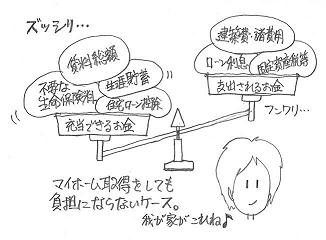 ズッシリ…
賃料総額
不要な
生命保険料
生涯貯蓄
住宅ローン控除
充当できるお金
建築費・諸費用
ローン利息
固定資産税等
支出されるお金
フンワリ…
マイホーム取得をしても
負担にならないケース。
我が家がこれね♪